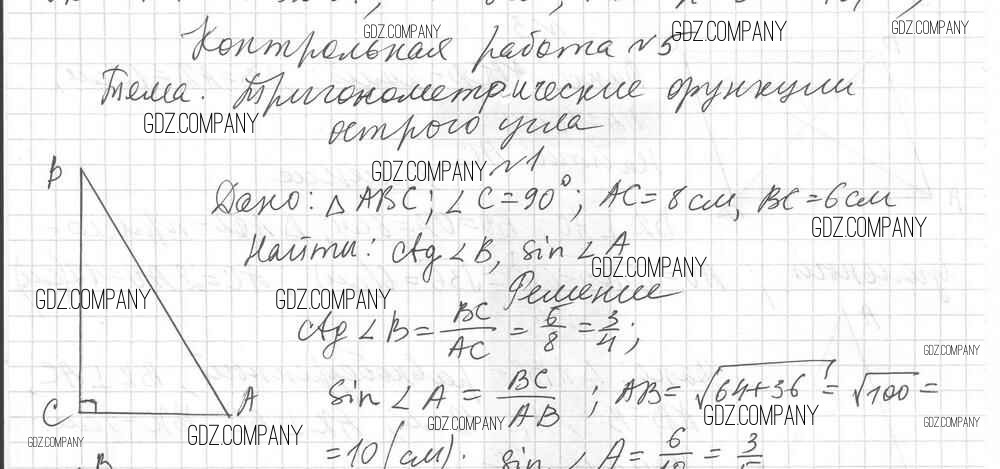 GDZ.COMPANY GDZ.COMPANY GDZ.COMPANY
Контрольная работа №5
Тема. Тригонометрические функции
GDZ.COMPANY
острого угла
GDZ.COMPANY №1
B
Дано: △ ABC; ∠ C = 90°; AC = 8 см, BC = 6 см
GDZ.COMPANY
Найти: ctg ∠ B, sin ∠ A
GDZ.COMPANY
GDZ.COMPANY GDZ.COMPANY Решение
ctg ∠ B = BC/AC = 6/8 = 3/4;
GDZ.COMPANY
sin ∠ A = BC/AB; AB = √64+36 = √100 =
C A
GDZ.COMPANY GDZ.COMPANY GDZ.COMPANY
GDZ.COMPANY GDZ.COMPANY
= 10 (см). sin ∠ A = 6/10 = 3/5
B